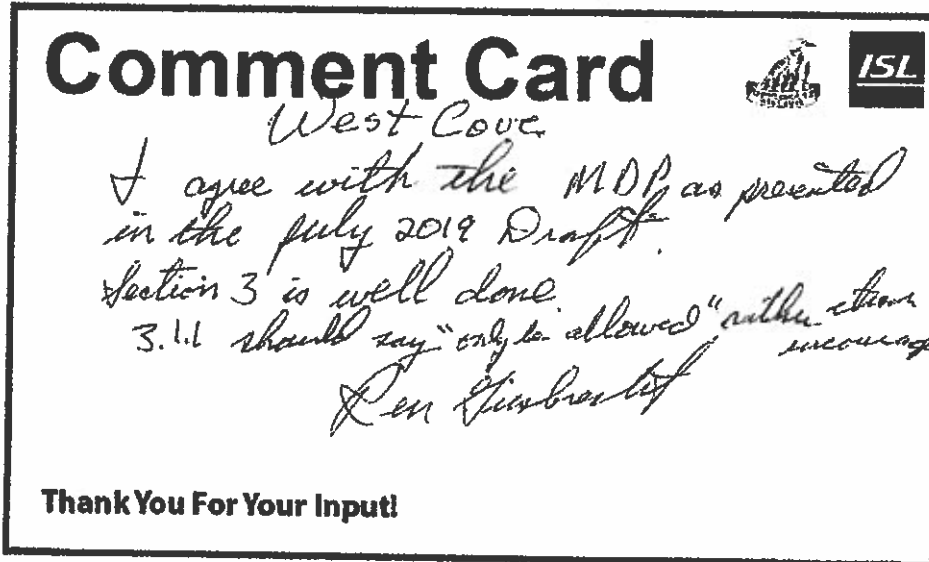 Comment Card
ISL
West Cove
I agree with the MDP as presented
in the July 2019 Draft.
Section 3 is well done
3.1.1 should say "only be allowed" rather than
encourage
Ken
Thank You For Your Input!